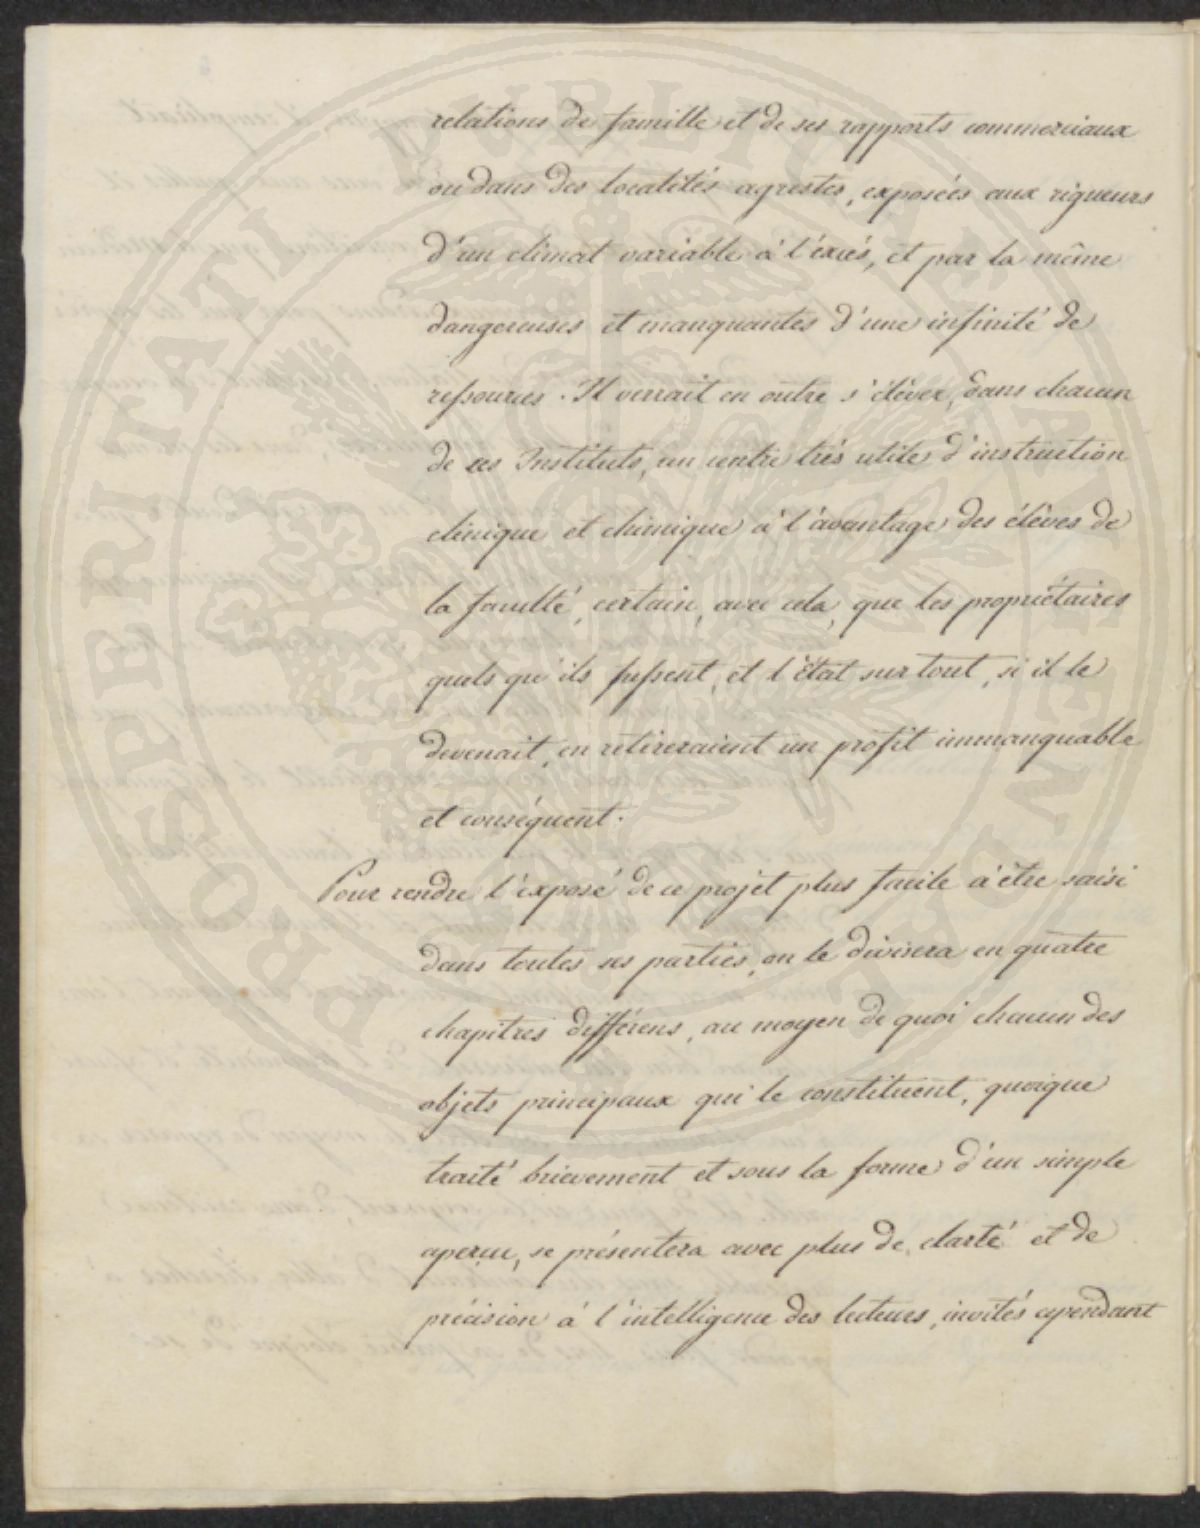 relations de famille et de ses rapports commerciaux
ou dans des localités agrestes, exposées aux rigueurs
d'un climat variable à l'excés, et par la même
dangereuses et manquantes d'une infinité de
ressources. Il verrait en outre s'élever, dans chacun
de ces Instituts, un centre très utile d'instruction
clinique et chimique à l'avantage des élèves de
la faculté, certain, avec cela, que les propriétaires
quels qu'ils fussent, et l'état sur tout, si il le
devenait, en retireraient un profit immanquable
et conséquent.
Pour rendre l'exposé de ce projet plus facile à être saisi
dans toutes ses parties, on le divisera en quatre
chapitres différens, au moyen de quoi chacun des
objets principaux qui le constituent, quoique
traité brievement et sous la forme d'un simple
aperçu, se présentera avec plus de clarté et de
précision à l'intelligence des lecteurs, invités cependant
PROSPERITATI PUBLICAE AUGENDAE